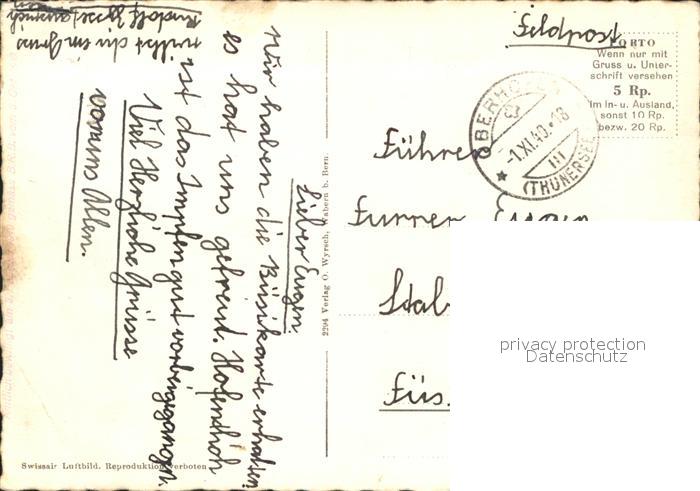 Feldpost
PORTO
Wenn nur mit
Gruss u. Unter-
schrift versehen
5 Rp.
Im In- u. Ausland,
sonst 10 Rp.
bezw. 20 Rp.
-1.XI.40.-18
III
(THUNERSEE)
Führer
Furrer Eugen
Stab
Füs.
privacy protection
Datenschutz
Lieber Eugen.
Wir haben die Büsikarte erhalten
es hat uns gefreut. Hofendlich
ist das Impfen gut vorbeigegangen.
Viel Herzliche Grüsse
von uns Allen.
Rudolf
2294 Verlag O. Wyrsch, Wabern b. Bern.
Swissair Luftbild. Reproduktion verboten